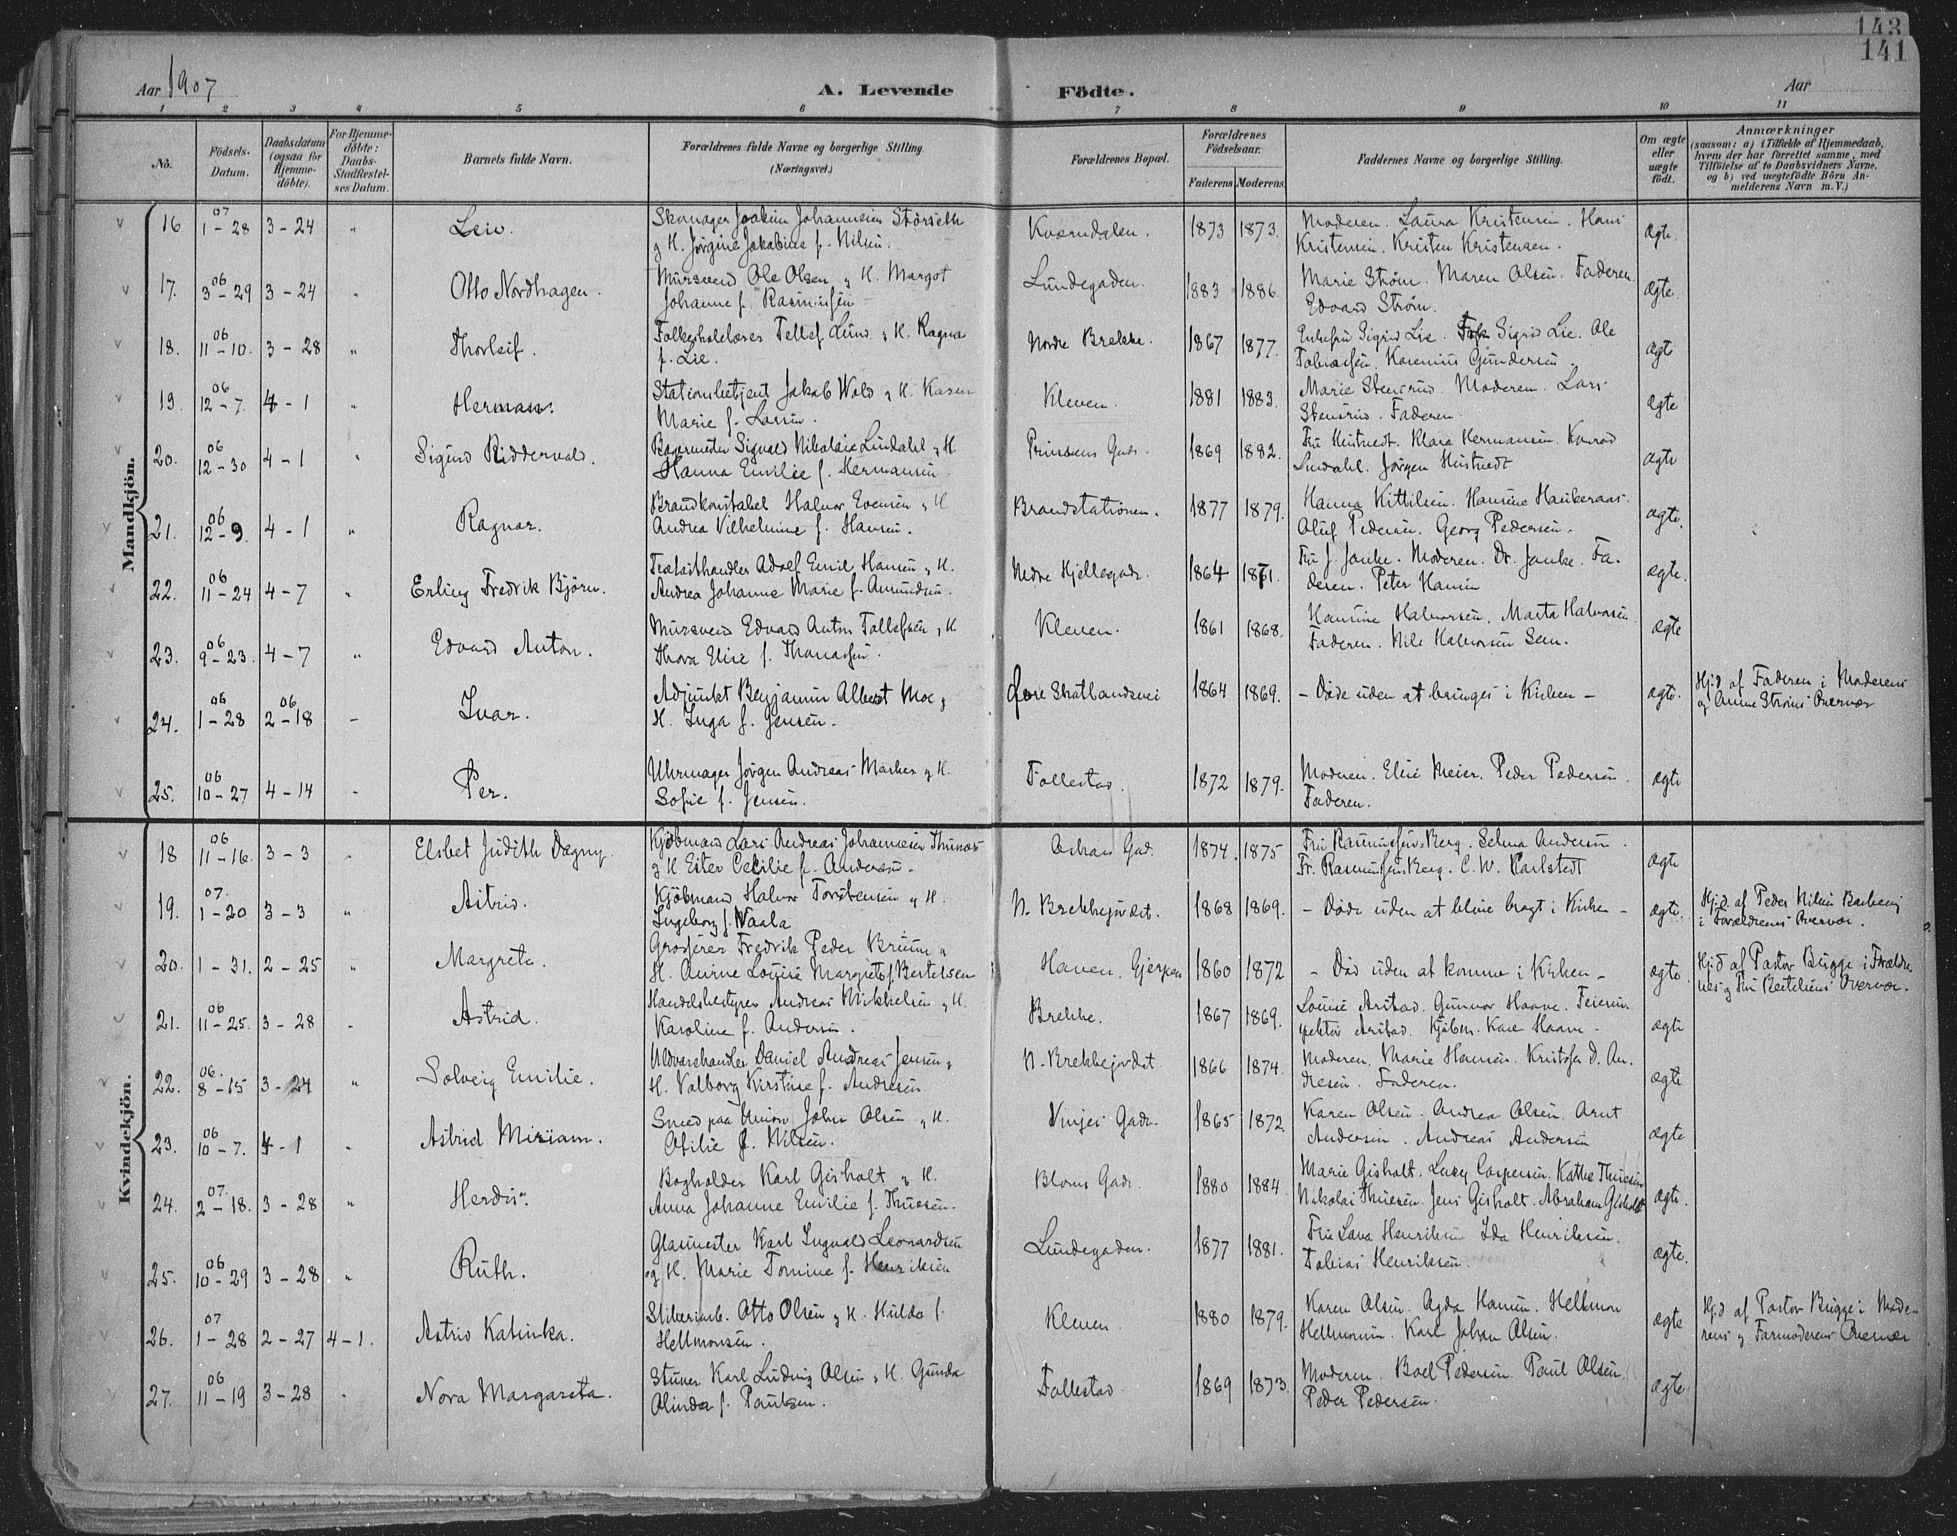 143
141
Aar 1907
A. Levende
Födte.
Aar
1 2 3 4 5 6 7 8 9 10 11
No. Födsels-Datum. Daabsdatum (ogsaa for Hjemme-döbte). For Hjemme-döbte: Daabs-Stadfæstel-ses Datum. Barnets fulde Navn. Forældrenes fulde Navne og borgerlige Stilling. (Næringsvei.) Forældrenes Bopæl. Forældrenes Födselsaar. Faderens Moderens. Faddernes Navne og borgerlige Stilling. Om ægte eller uægte födt. Anmærkninger (saasom: a) i Tilfælde af Hjemmedaab, hvem der har forrettet samme, med Tilföielse af to Daabsvidners Navne, og b) ved uægtefödte Börn An-melderens Navn m. V.)
Mandkjön.
16 07 1-28 3-24 " Leiv. Skomager Joakim Johannesen Störseth Kværndalen. 1873 1873. Moderen. Laura Kristensen. Hans ægte.
g H. Jørgine Jakobine f. Nilsen. Kristensen. Kristen Kristensen.
17. 06 3-29 3-24 " Otto Nordhagen. Mursvend Ole Olsen g H. Margot Lundegaden. 1883 1886. Marie Strøm. Maren Olsen. Faderen. ægte.
Johanne f. Rasmussen Edvard Strøm.
18. 06 11-10. 3-28 " Thorleif. Folkeskolelærer Tellef Lund g H. Ragna Nordre Brekke. 1867 1877. Enkefru Sigrid Lie. Frk Sigrid Lie. Ole ægte
f. Lie. Tobiassen. Karenius Gundersen.
19. 06 12-7. 4-1 " Herman. Stationsbetjent Jakob Wold g H. Karen Kleven. 1881 1883. Marie Stensrud. Moderen. Lars ægte
Marie f. Larsen. Stensrud. Faderen.
20. 06 12-30 4-1 " Sigurd Riddervold. Bagermester Sigvald Nikolai Lindahl g H. Prinsens Gade. 1869 1882. Fru Hustvedt. Klara Hermansen. Konrad ægte
Hanna Emilie f. Hermansen. Lindahl. Jørgen Hustvedt
21. 06 12-9. 4-1 " Ragnar. Brandkonstabel Halvor Evensen g H Brandstationen. 1877 1879. Hanna Kittilsen. Hansine Haukeraas. ægte.
Andrea Vilhelmine f. Hansen. Oluf Pedersen. Georg Pedersen.
22. 06 11-24 4-7 " Erling Fredrik Bjørn. Trælasthandler Adolf Emil Hansen g H. Nedre Hjellegade. 1864 1871. Fru J Janke. Moderen. Dr. Janke. Fa- ægte.
Andrea Johanne Marie f. Amundsen. deren. Peter Hansen
23. 06 9-23. 4-7 " Edvard Anton. Mursvend Edvard Anton Tollefsen g H Kleven. 1861 1868. Hansine Halvorsen. Marta Halvorsen. ægte
Thora Elise f. Thomassen. Faderen. Nils Halvorsen Sem.
24. 06 1-28 06 2-18 - Ivar. Adjunkt Benjamin Albert Moe g Øvre Skotlandsvei 1864 1869. - Døde uden at bringes i Kirken - ægte. Hj.d af Faderen i Moderens
H. Inga f. Jensen. og Anne Strøms Overvær
25. 06 10-27 4-14 - Per. Uhrmager Jörgen Andreas Marker g H. Follestad. 1872 1879. Moderen. Elise Meier. Peder Pedersen. ægte
Sofie f. Jensen. Faderen.
Kvindekjön.
18 06 11-16. 3-3 " Elsbet Judith Dagny. Kjöbmand Lars Andreas Johannesen Thunæs 1874. 1875 Fru Rasmussen-Berg. Selma Andersen. ægte
g H Ester Cecilie f. Andersen. Fr. Rasmussen Berg. C. W. Carlstedt
19. 07. 1-20 3-3 " Astrid. Kjöbmand Halvor Torstensen g H. N. Brekkejordet. 1868 1869. - Døde uden at blive bragt i Kirken - ægte. Hj.d af Peder Nilsen Bakkeng
Ingeborg f. Vaala i Forældrenes Overvær.
20. 1-31. 2-25 " Margrete. Grosserer Fredrik Peder Bruun g Haven. Gjerpen 1860 1872 - Død uden at komme i Kirken - ægte. Hj.d af Pastor Brügge i Forældre
H. Anine Louise Margrete f. Bertelsen nes g Fru Bertelsens Overvær.
21. 06 11-25. 3-28 " Astrid. Handelsbestyrer Andreas Mikkelsen g H. Brekke. 1867 1869. Louise Arstad. Gunvor Haave. Feierin- ægte
Karoline f. Andersen. spektør Arstad. Kjöbm. Kare Haave.
22. 06. 8-15 3-24 " Solveig Emilie. Uldvarehandler Daniel Andreas Jensen g N. Brekkejordet. 1866 1874. Moderen. Marie Hansen. Kristofer D. An- ægte
H. Valborg Kirstine f. Andresen. dresen. Faderen.
23. 06 10-7. 4-1 " Astrid Miriam. Smed paa Union John Olsen g H. Vinjes Gade. 1865 1872. Karen Olsen. Andrea Olsen. Arnt ægte
Otilie f. Nilsen. Andersen. Andreas Andersen
24. 07. 2-18. 3-28 " Herdis. Bogholder Karl Gisholt g H. Bloms Gade. 1880 1884. Marie Gisholt. Lucy Caspersen. Kathe Thuesen ægte.
Anna Johanne Emilie f. Thuesen. Nikolai Thuesen. Jens Gisholt. Abraham Gisholt
25. 06 10-29 3-28 " Ruth. Glasmester Karl Ingvald Leonardsen Lundegaden. 1877 1881. Fru Lava Henriksen Ida Henriksen. ægte.
og H. Marie Tomine f. Henriksen Tobias Henriksen.
26. 07 1-28 2-27 4-1. Astrid Katinka. Sliberiarb. Otto Olsen g H. Hulda f. Kleven. 1880 1879. Karen Olsen. Agda Hansen. Hellmon ægte Hj.d af Pastor Brügge i Mode-
Hellmonsen. Hellmonsen. Karl Johan Olsen. rens g Farmoderens Overvær
27. 06 11-19 3-28 " Nora Margareta. Stuver Karl Ludvig Olsen g H. Gunda Follestad. 1869 1873. Moderen. Boel Pedersen. Paul Olsen. ægte
Olinda f. Paulsen. Peder Pedersen.